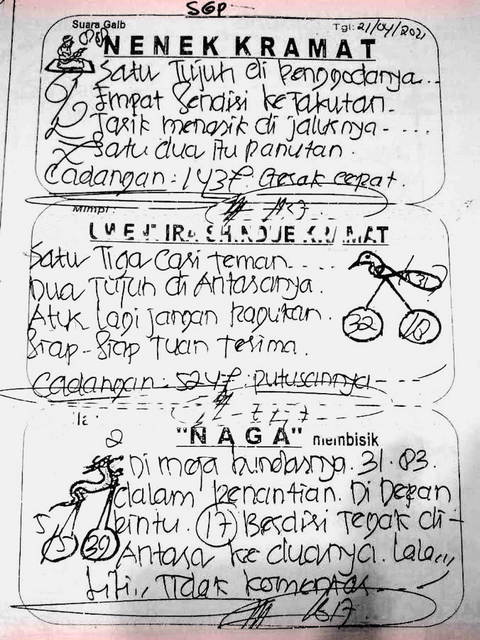 SGP
Suara Gaib
Tgl: 21/04/2021
NENEK KRAMAT
Satu Tujuh di penggodanya...
Empat Berdiri ketakutan.
Tarik menarik di jalurnya-....
Satu dua itu panutan.
Cadangan: 1437. Gerak cepat.
Mimpi:
KRAMAT
Satu Tiga cari teman.....
Dua Tujuh di Antaranya.
Atur lagi jangan
Siap-Siap Tuan Terima.
Cadangan: 5247. putusannya----
32
18
"NAGA" membisik
2
Di meja bundarnya. 31.83.
dalam penantian. Di Depan
pintu. 17 Berdiri Tegak di-
Antara ke duanya. Lala,,,
Lili,, Tidak komentar
5
39